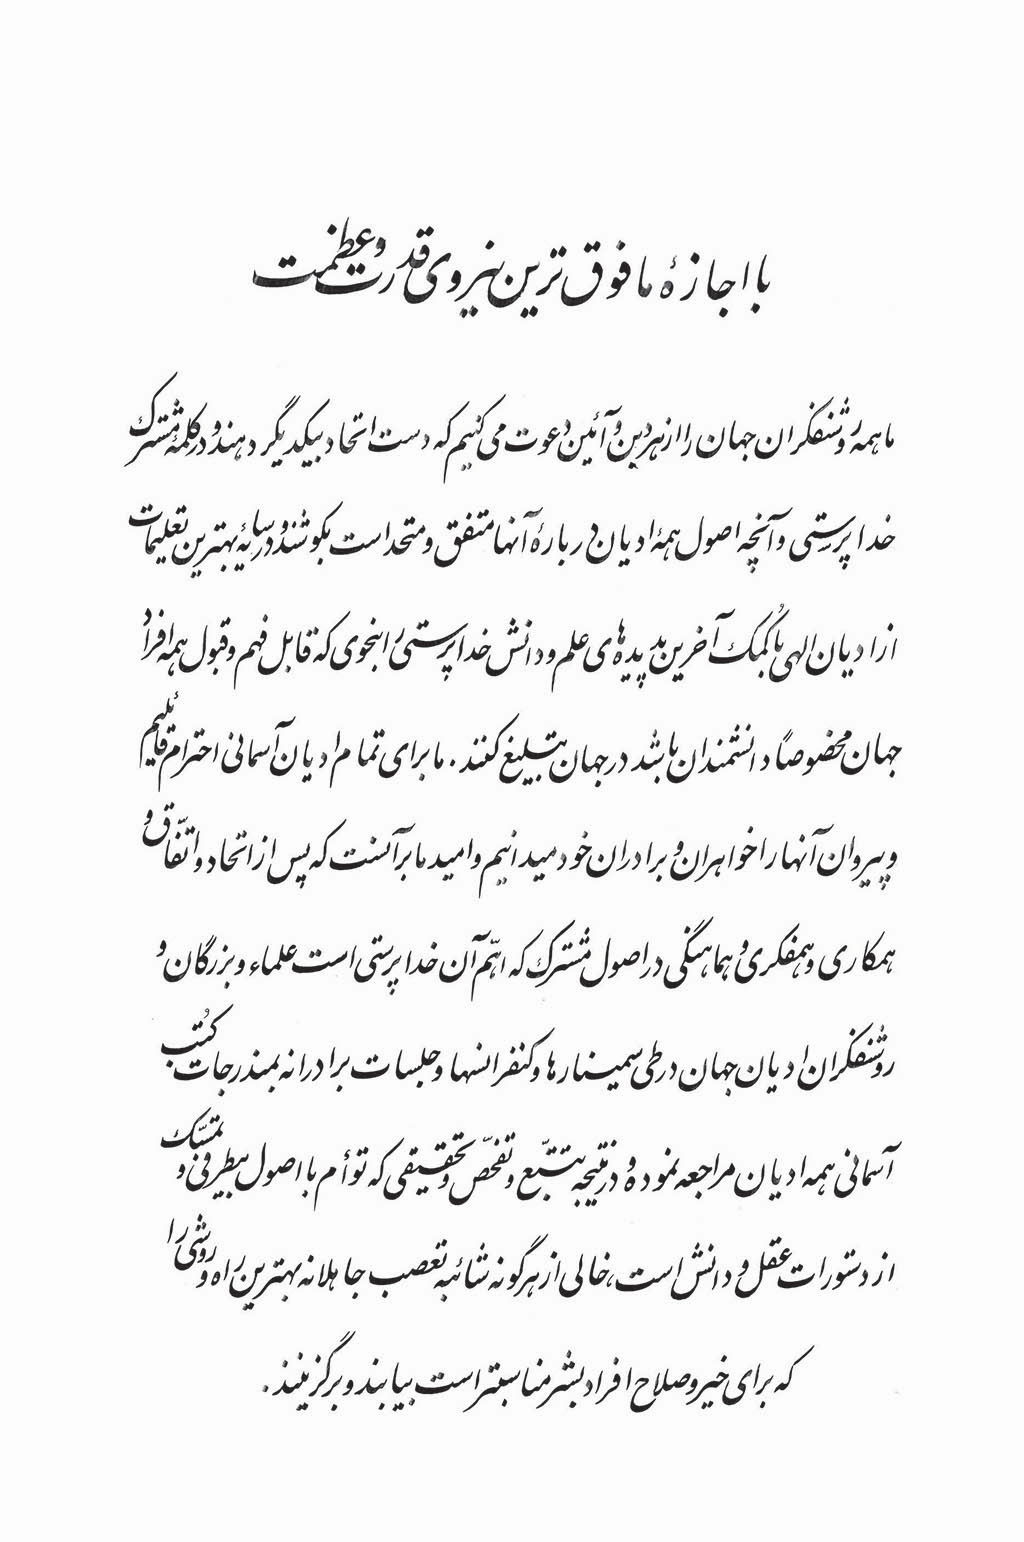 با اجازهٔ مافوق ترین نیروی قدرت و عظمت
ما همه روشنفکران جهان را از هر دین و آئین دعوت می کنیم که دست اتحاد بیکدیگر دهند و در کلمهٔ مشترک
خدا پرستی و آنچه اصول همهٔ ادیان در بارهٔ آنها متفق و متحد است بکوشند و در سایهٔ بهترین تعلیمات
از ادیان الهی با کُمک آخرین پدیده های علم و دانش خدا پرستی را بنحوی که قابل فهم و قبول همه افراد
جهان مخصوصاً دانشمندان باشد در جهان تبلیغ کنند . ما برای تمام ادیان آسمانی احترام قائلیم
و پیروان آنها را خواهران و برادران خود میدانیم و امید ما بر آنست که پس از اتحاد و اتّفاق و
همکاری و همفکری و هماهنگی در اصول مشترک که اهمّ آن خدا پرستی است علماء و بزرگان و
روشنفکران ادیان جهان در طی سمینارها و کنفرانسها و جلسات برادرانه بمندرجات کُتب
آسمانی همه ادیان مراجعه نموده و در نتیجه تتبّع و تفحّص و تحقیقی که توأم با اصول بیطرفی و تمسّک
از دستورات عقل و دانش است، خالی از هرگونه شائبه تعصب جاهلانه بهترین راه و روشی را
که برای خیر و صلاح افراد بشر مناسبتر است بیابند و برگزینند .